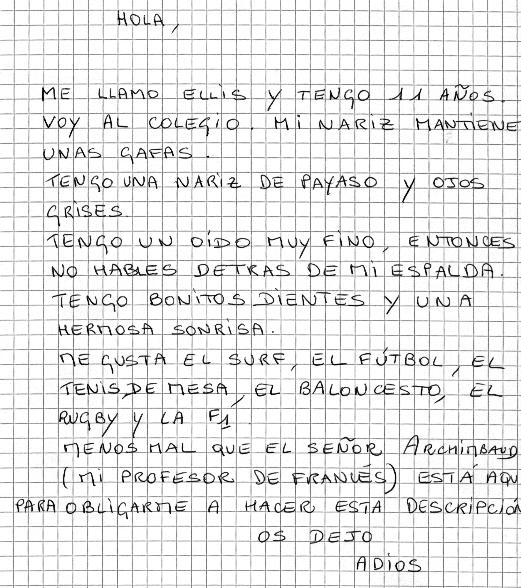 HOLA,
ME LLAMO ELLIS Y TENGO 11 AÑOS.
VOY AL COLEGIO. MI NARIZ MANTIENE
UNAS GAFAS.
TENGO UNA NARIZ DE PAYASO Y OJOS
GRISES
TENGO UN OÍDO MUY FINO, ENTONCES
NO HABLES DETRAS DE MI ESPALDA.
TENGO BONITOS DIENTES Y UNA
HERMOSA SONRISA.
ME GUSTA EL SURF, EL FÚTBOL, EL
TENIS DE MESA, EL BALONCESTO, EL
RUGBY Y LA F1
MENOS MAL QUE EL SEÑOR ARCHIMBAUD
(MI PROFESOR DE FRANCÉS) ESTÁ AQU
PARA OBLIGARME A HACER ESTA DESCRIPCIÓN
OS DEJO
ADIOS